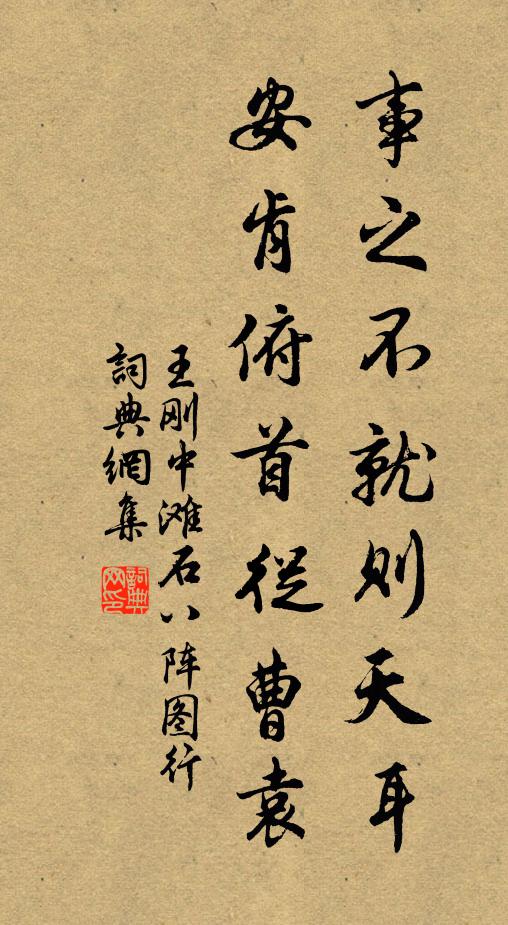 事之不就則天耳
安肯俯首從曹袁
王刚中滩石八阵图行
詞典網集
詞典网印